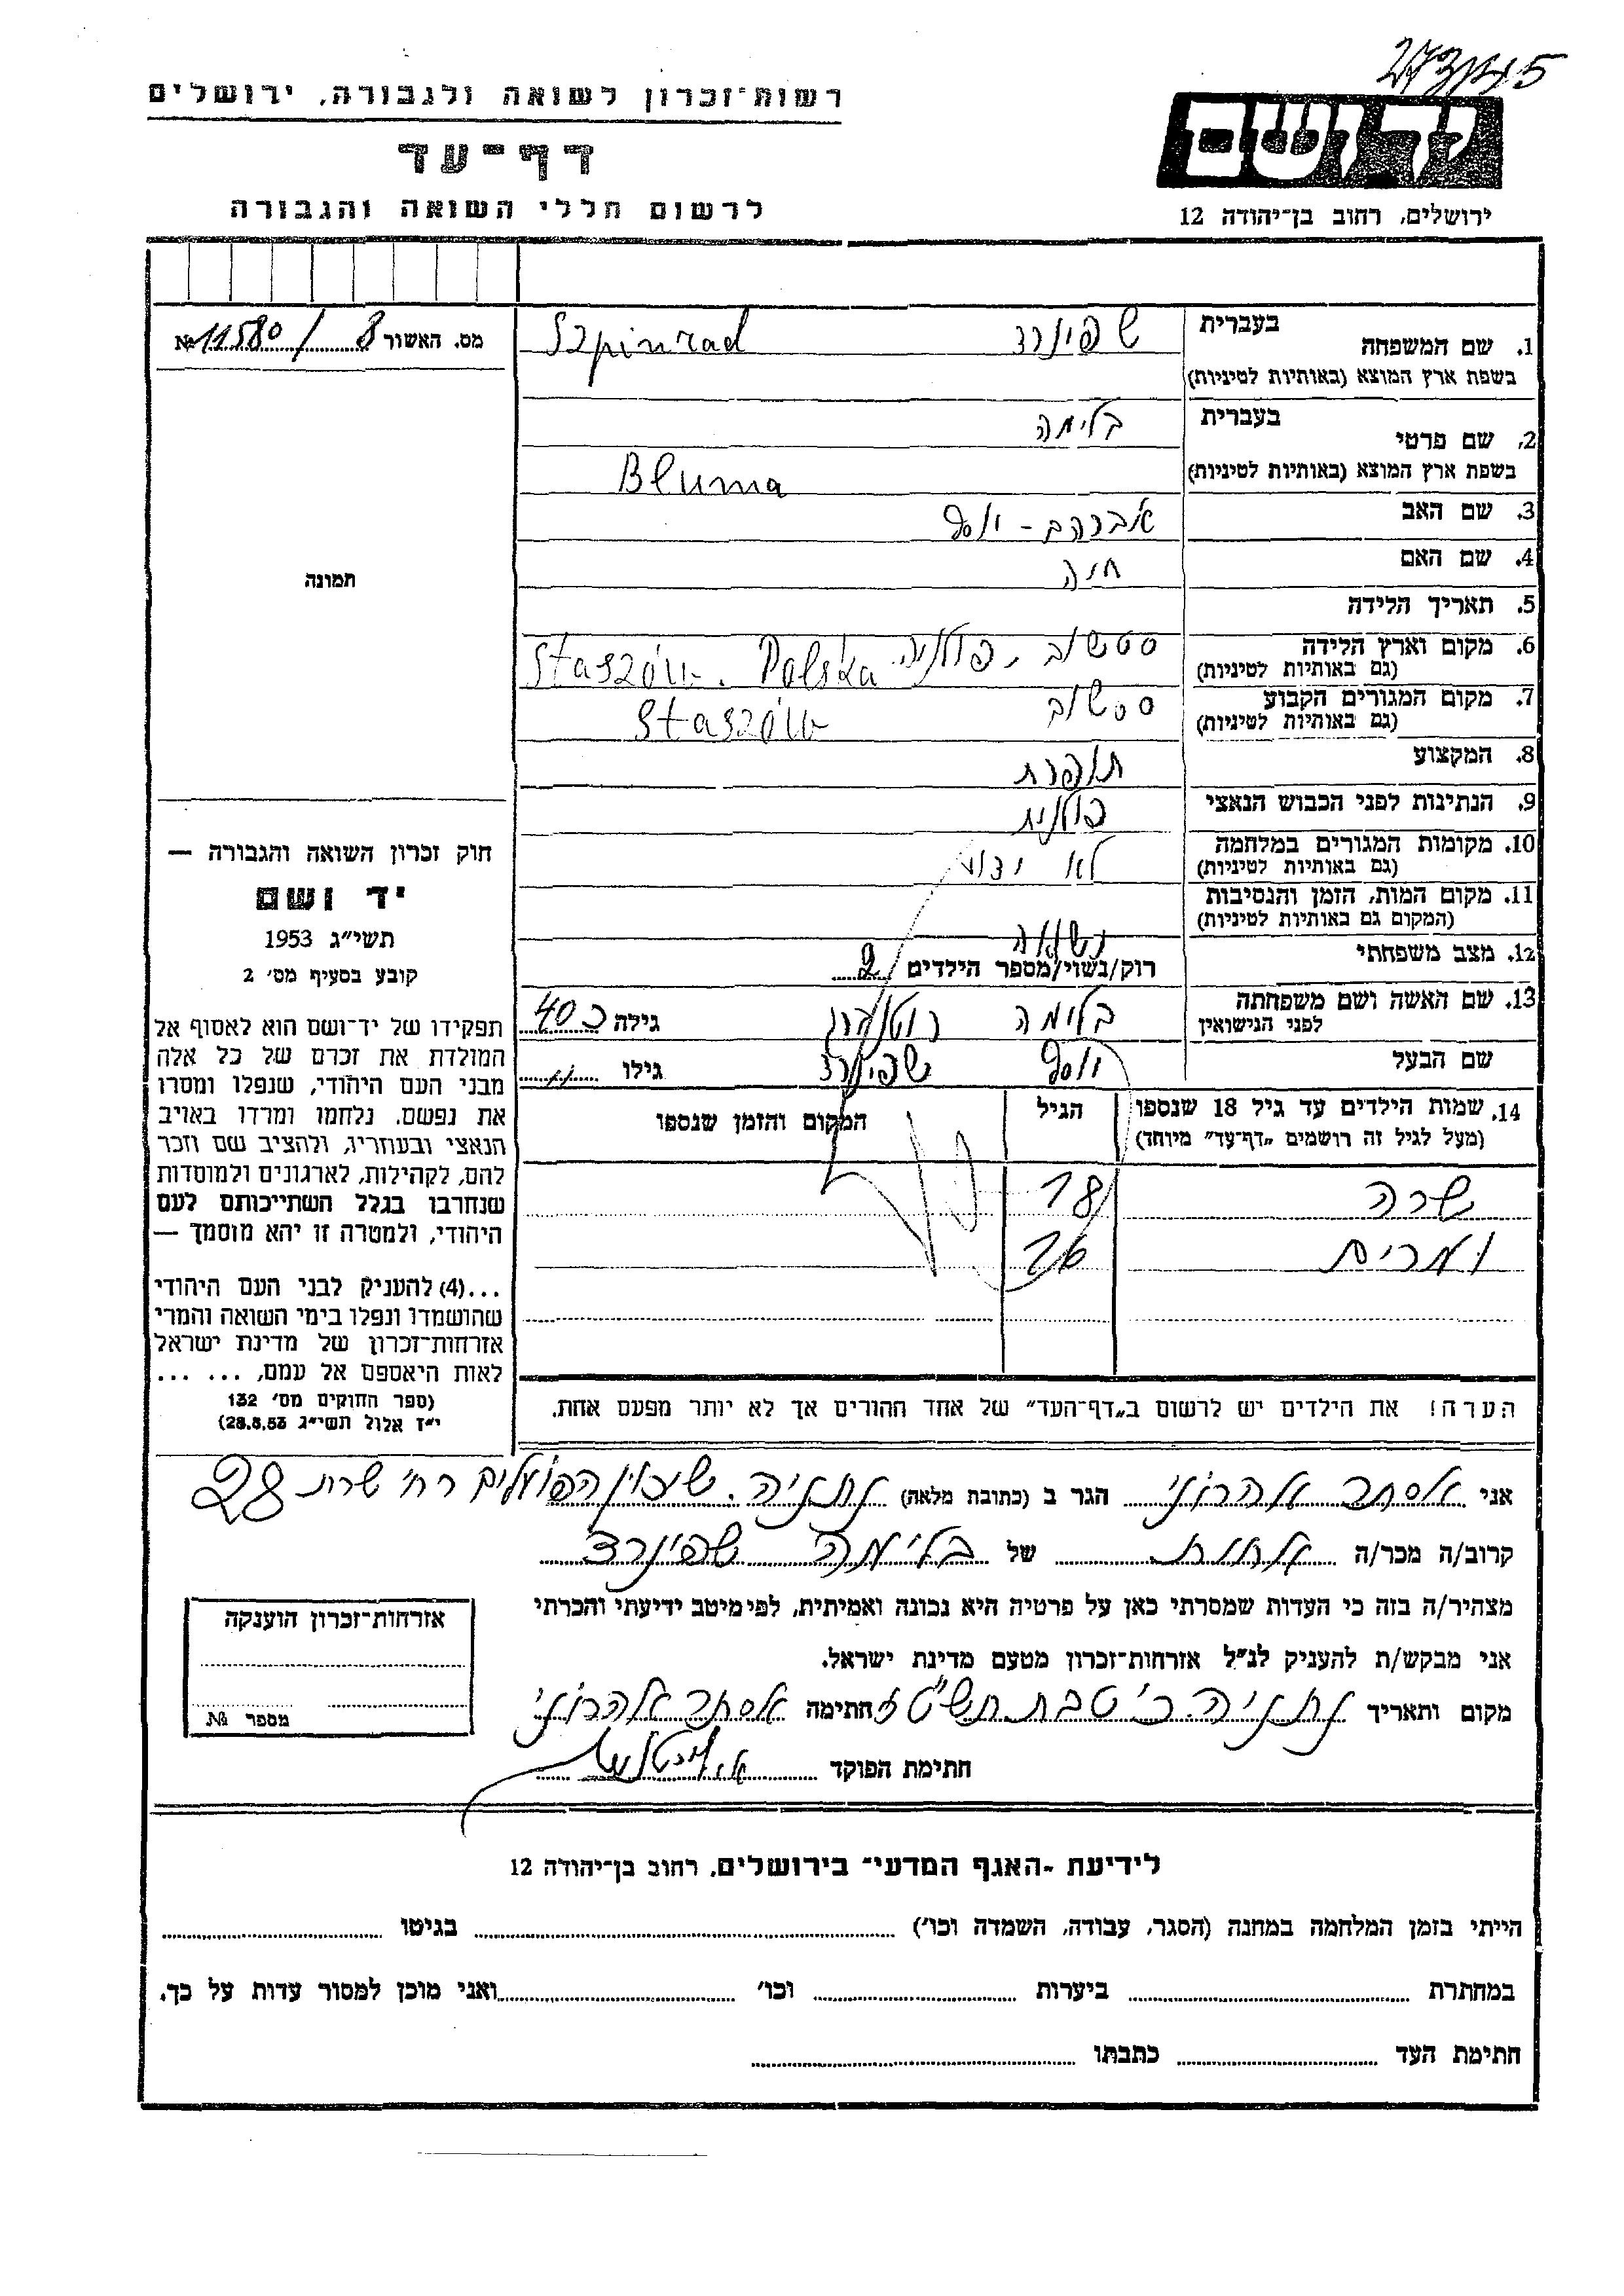 רשות־זכרון לשואה ולגבורה, ירושלים
דף־עד
לרשום חללי השואה והגבורה
יד ושם
ירושלים, רחוב בן־יהודה 12
מס. האשור 8 / 11580 №
1. שם המשפחה בעברית שפינרד Szpinrad
בשפת ארץ המוצא (באותיות לטיניות)
2. שם פרטי בעברית בלימה
בשפת ארץ המוצא (באותיות לטיניות) Bluma
3. שם האב אברהם - יוסף
4. שם האם חיה
5. תאריך הלידה
6. מקום וארץ הלידה סטשוב, פולניה. Staszów. Polska
(גם באותיות לטיניות)
7. מקום המגורים הקבוע סטשוב Staszów
(גם באותיות לטיניות)
8. המקצוע תופרת
9. הנתינות לפני הכבוש הנאצי פולנית
10. מקומות המגורים במלחמה לא ידוע
(גם באותיות לטיניות)
11. מקום המות, הזמן והנסיבות
(המקום גם באותיות לטיניות)
12. מצב משפחתי נשואה
רוק/נשוי/מספר הילדים 2
13. שם האשה ושם משפחתה בלימה רוטנברג גילה כ 40
לפני הנישואין
שם הבעל יוסף שפינרד גילו "
14. שמות הילדים עד גיל 18 שנספו הגיל המקום והזמן שנספו
(מעל לגיל זה רושמים „דף־עד” מיוחד)
שרה 18
ומרים 16
הערה! את הילדים יש לרשום ב„דף־העד” של אחד ההורים אך לא יותר מפעם אחת.
תמונה
חוק זכרון השואה והגבורה —
יד ושם
תשי״ג 1953
קובע בסעיף מס׳ 2
תפקידו של יד־ושם הוא לאסוף אל
המולדת את זכרם של כל אלה
מבני העם היהודי, שנפלו ומסרו
את נפשם. נלחמו ומרדו באויב
הנאצי ובעוזריו, ולהציב שם וזכר
להם, לקהילות, לארגונים ולמוסדות
שנחרבו בגלל השתייכותם לעם
היהודי, ולמטרה זו יהא מוסמך —
...(4) להעניק לבני העם היהודי
שהושמדו ונפלו בימי השואה והמרי
אזרחות־זכרון של מדינת ישראל
לאות היאספם אל עמם, ... ...
(ספר החוקים מס׳ 132
י״ז אלול תשי״ג 28.8.53)
אני אסתר אהרוני הגר ב (כתובת מלאה) נתניה. שיכון הפועלים רח׳ שרת 28
קרוב/ה מכר/ה אחות של בלימה שפינרד
מצהיר/ה בזה כי העדות שמסרתי כאן על פרטיה היא נכונה ואמיתית, לפי מיטב ידיעתי והכרתי
אני מבקש/ת להעניק לנ״ל אזרחות־זכרון מטעם מדינת ישראל.
מקום ותאריך נתניה. כ׳ טבת תשט״ז חתימה אסתר אהרוני
חתימת הפוקד
אזרחות־זכרון הוענקה
מספר №
לידיעת ־האגף המדעי־ בירושלים, רחוב בן־יהודה 12
הייתי בזמן המלחמה במחנה (הסגר, עבודה, השמדה וכו׳) בגיטו
במחתרת ביערות וכו׳ ואני מוכן למסור עדות על כך.
חתימת העד כתבתו